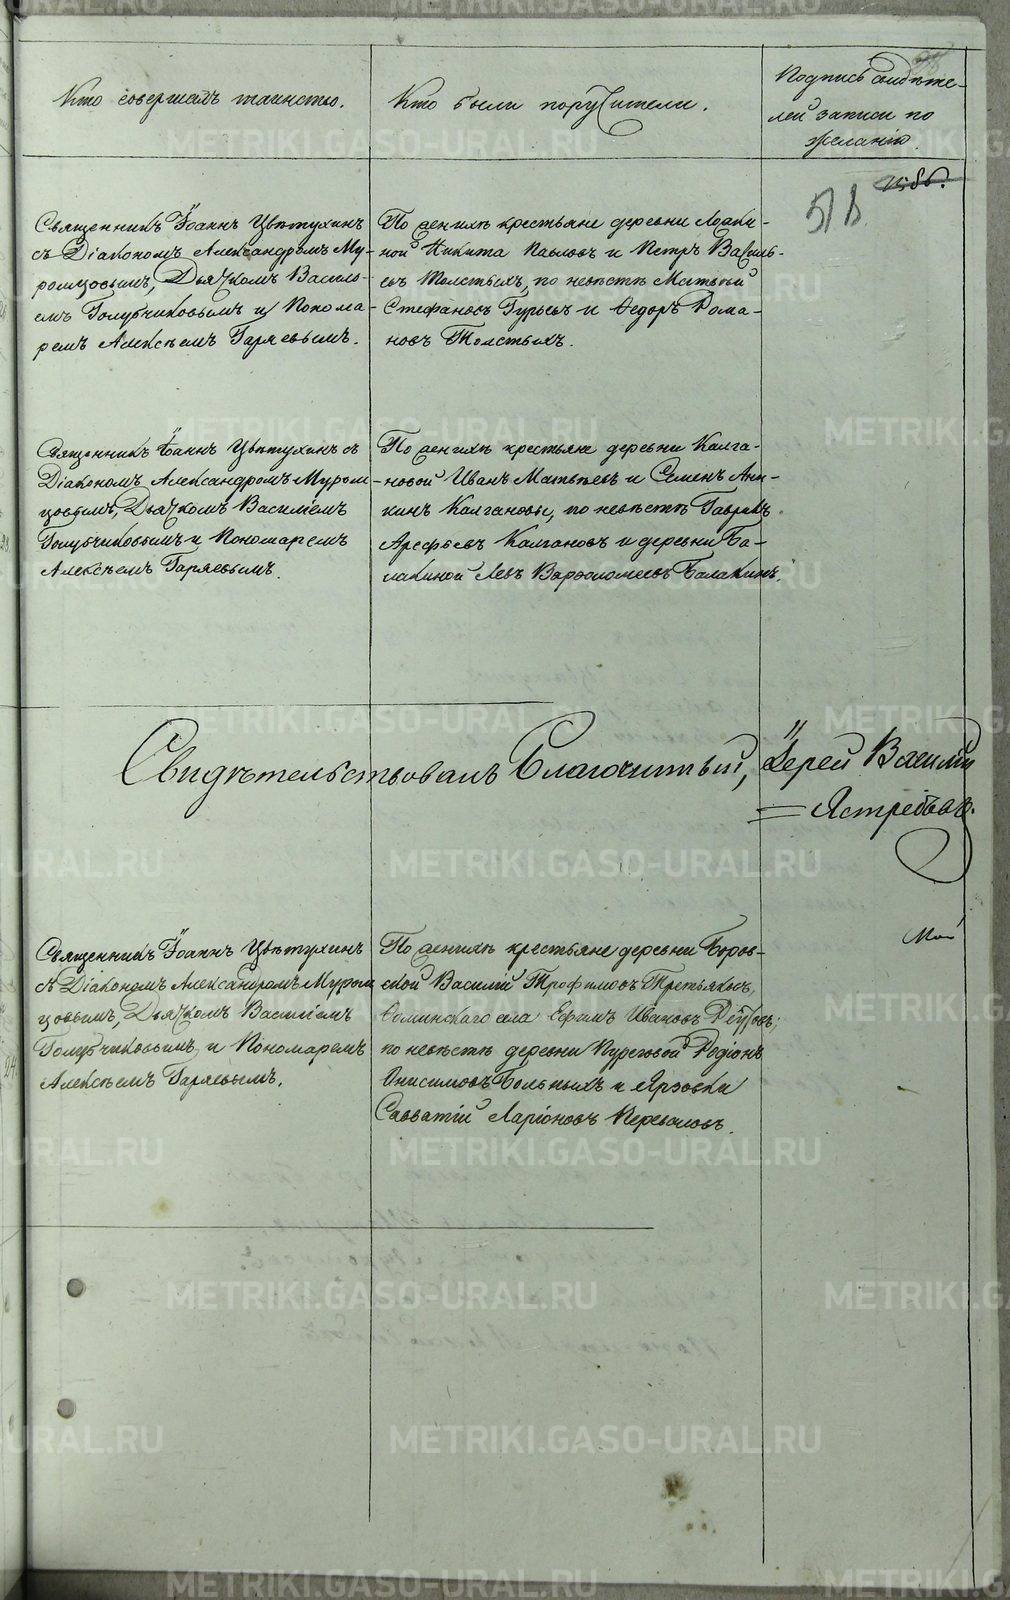 Кто совершалъ таинство.
Кто были поручители.
Подпись свидѣте-
лей записи по
желанію.
518
Священникъ Іоаннъ Цвѣтухинъ
съ Діакономъ Александромъ Му-
ромцовымъ, Дьячкомъ Василь-
емъ Голубчиковымъ и Понома-
ремъ Алексѣемъ Гаряевымъ.
По женихѣ крестьяне деревни
ной Никита Павловъ и Петръ Василь-
евъ Толстыхъ, по невѣстѣ Матвей
Стефановъ Гурьевъ и Ѳедоръ Рома-
новъ Толстыхъ.
Священникъ Іоаннъ Цвѣтухинъ съ
Діакономъ Александромъ Муром-
цовымъ, Дьячкомъ Василіемъ
Голубчиковымъ и Пономаремъ
Алексѣемъ Гаряевымъ.
По женихѣ крестьяне деревни Калга-
новой Иванъ Матвѣевъ и Семенъ Ани-
кинъ Калгановы, по невѣстѣ Гаврилъ
Арефьевъ Калгановъ и деревни Ба-
лакиной Левъ Варѳоломеевъ Балакинъ.
Свидѣтельствовалъ Благочинный, Іерей Василій
Ястребовъ.
Священникъ Іоаннъ Цвѣтухинъ
съ Діакономъ Александромъ Муром
цовымъ, Дьячкомъ Василіемъ
Голубчиковымъ и Пономаремъ
Алексѣемъ Гаряевымъ.
По женихѣ крестьяне деревни Боров-
ской Василій Трофимовъ Третьяковъ,
села Ефимъ Ивановъ
по невѣстѣ деревни Пуреговой Родіонъ
Онисимовъ Больныхъ и Ярзовки
Савватій Ларіоновъ Переваловъ.
METRIKI.GASO-URAL.RU